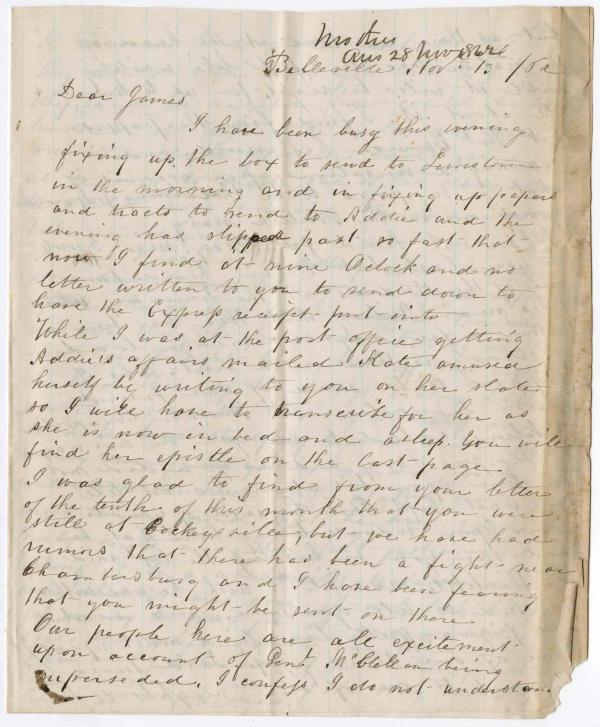 Mother
Ans 28 Nov 1862
Belleville Nov. 13 /62
Dear James
I have been busy this evening
fixing up the box to send to Lewistown
in the morning and in fixing up papers
and tracts to send to Addie and the
evening has slipped past so fast that
now I find it nine Oclock and no
letter written to you to send down to
have the Express receipt put into
While I was at the post office getting
Addie's affairs mailed Kate amused
herself by writing to you on her slate
so I will have to transcribe for her as
she is now in bed and asleep. You will
find her epistle on the last page
I was glad to find from your letter
of the tenth of this month that you were
still at Cockeysville, but we have had
rumors that there has been a fight near
Chambersburg and I have been fearing
that you might be sent on there
Our people here are all excitement
upon account of Genl McClellan being
superseded. I confess I do not understand